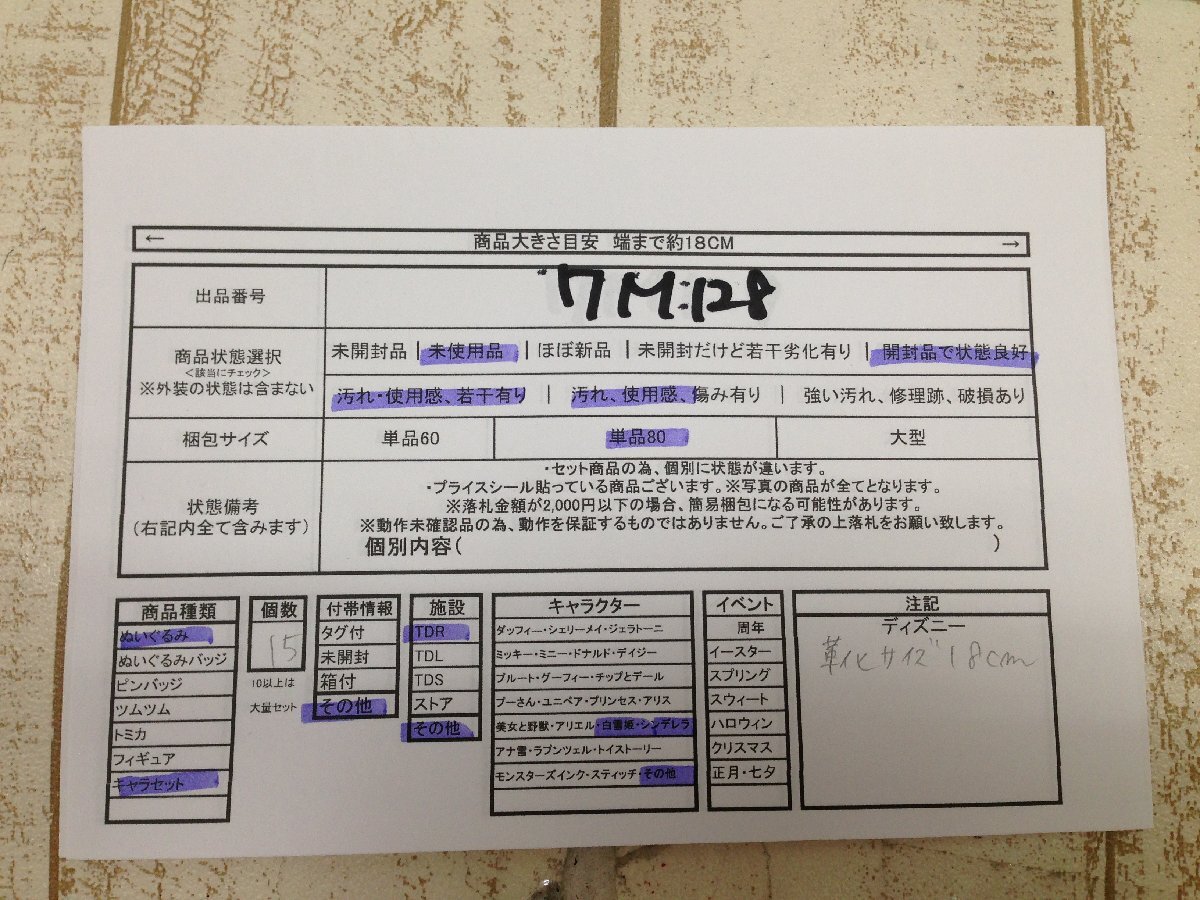 ← 商品大きさ目安 端まで約18CM →
出品番号 7M:128
商品状態選択
<該当にチェック>
※外装の状態は含まない
未開封品 | 未使用品 | ほぼ新品 | 未開封だけど若干劣化有り | 開封品で状態良好
汚れ・使用感、若干有り | 汚れ、使用感、傷み有り | 強い汚れ、修理跡、破損あり
梱包サイズ 単品60 単品80 大型
状態備考
(右記内全て含みます)
・セット商品の為、個別に状態が違います。
・プライスシール貼っている商品ございます。※写真の商品が全てとなります。
※落札金額が2,000円以下の場合、簡易梱包になる可能性があります。
※動作未確認品の為、動作を保証するものではありません。ご了承の上落札をお願い致します。
個別内容( )
商品種類
ぬいぐるみ
ぬいぐるみバッジ
ピンバッジ
ツムツム
トミカ
フィギュア
キャラセット
個数
15
10以上は
大量セット
付帯情報
タグ付
未開封
箱付
その他
施設
TDR
TDL
TDS
ストア
その他
キャラクター
ダッフィー・シェリーメイ・ジェラトーニ
ミッキー・ミニー・ドナルド・デイジー
プルート・グーフィー・チップとデール
プーさん・ユニベア・プリンセス・アリス
美女と野獣・アリエル・白雪姫・シンデレラ
アナ雪・ラプンツェル・トイストーリー
モンスターズインク・スティッチ・その他
イベント
周年
イースター
スプリング
スウィート
ハロウィン
クリスマス
正月・七夕
注記
ディズニー
靴サイズ 18cm